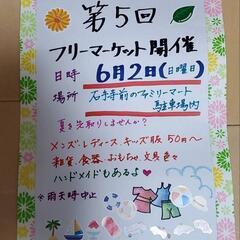 第5回
フリーマーケット開催
日時 6月2日(日曜日)
場所 石手寺前のファミリーマート
駐車場内
夏を先取りしませんか?
メンズ・レディース、キッズ服 50円〜
雑貨、食器、おもちゃ、文具色々
ハンドメイドもあるよ♡
※雨天時中止